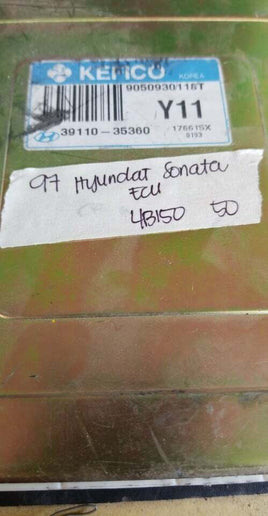 KEFICO KOREA
9050930118T
Y11
39110-35360 17661SX
8193
97 Hyundai Sonata
ECU
4B150 50